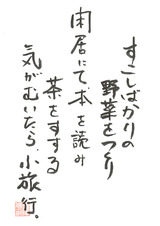 すこしばかりの
野菜をつくり
閑居にて本を読み
茶をすする
気がむいたら、小旅行。